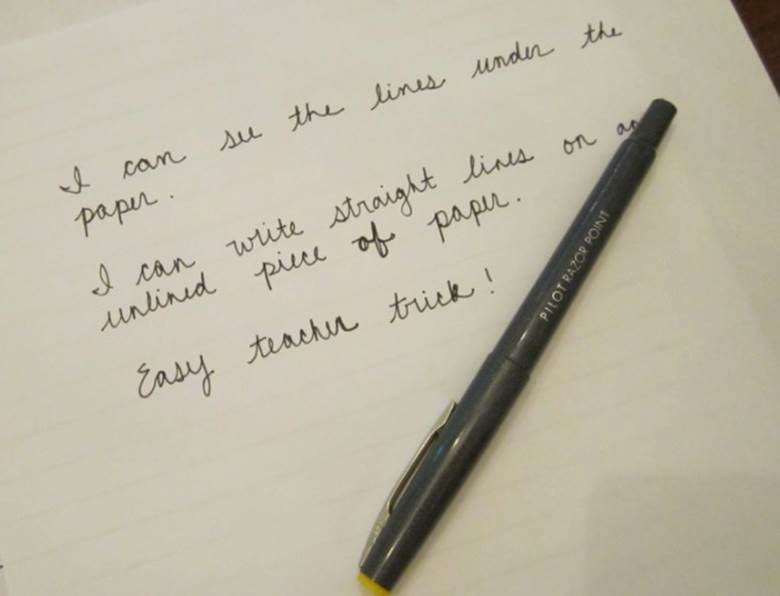 I can see the lines under the
paper.
I can write straight lines on
unlined piece of paper.
Easy teacher trick!
PILOT RAZOR POINT